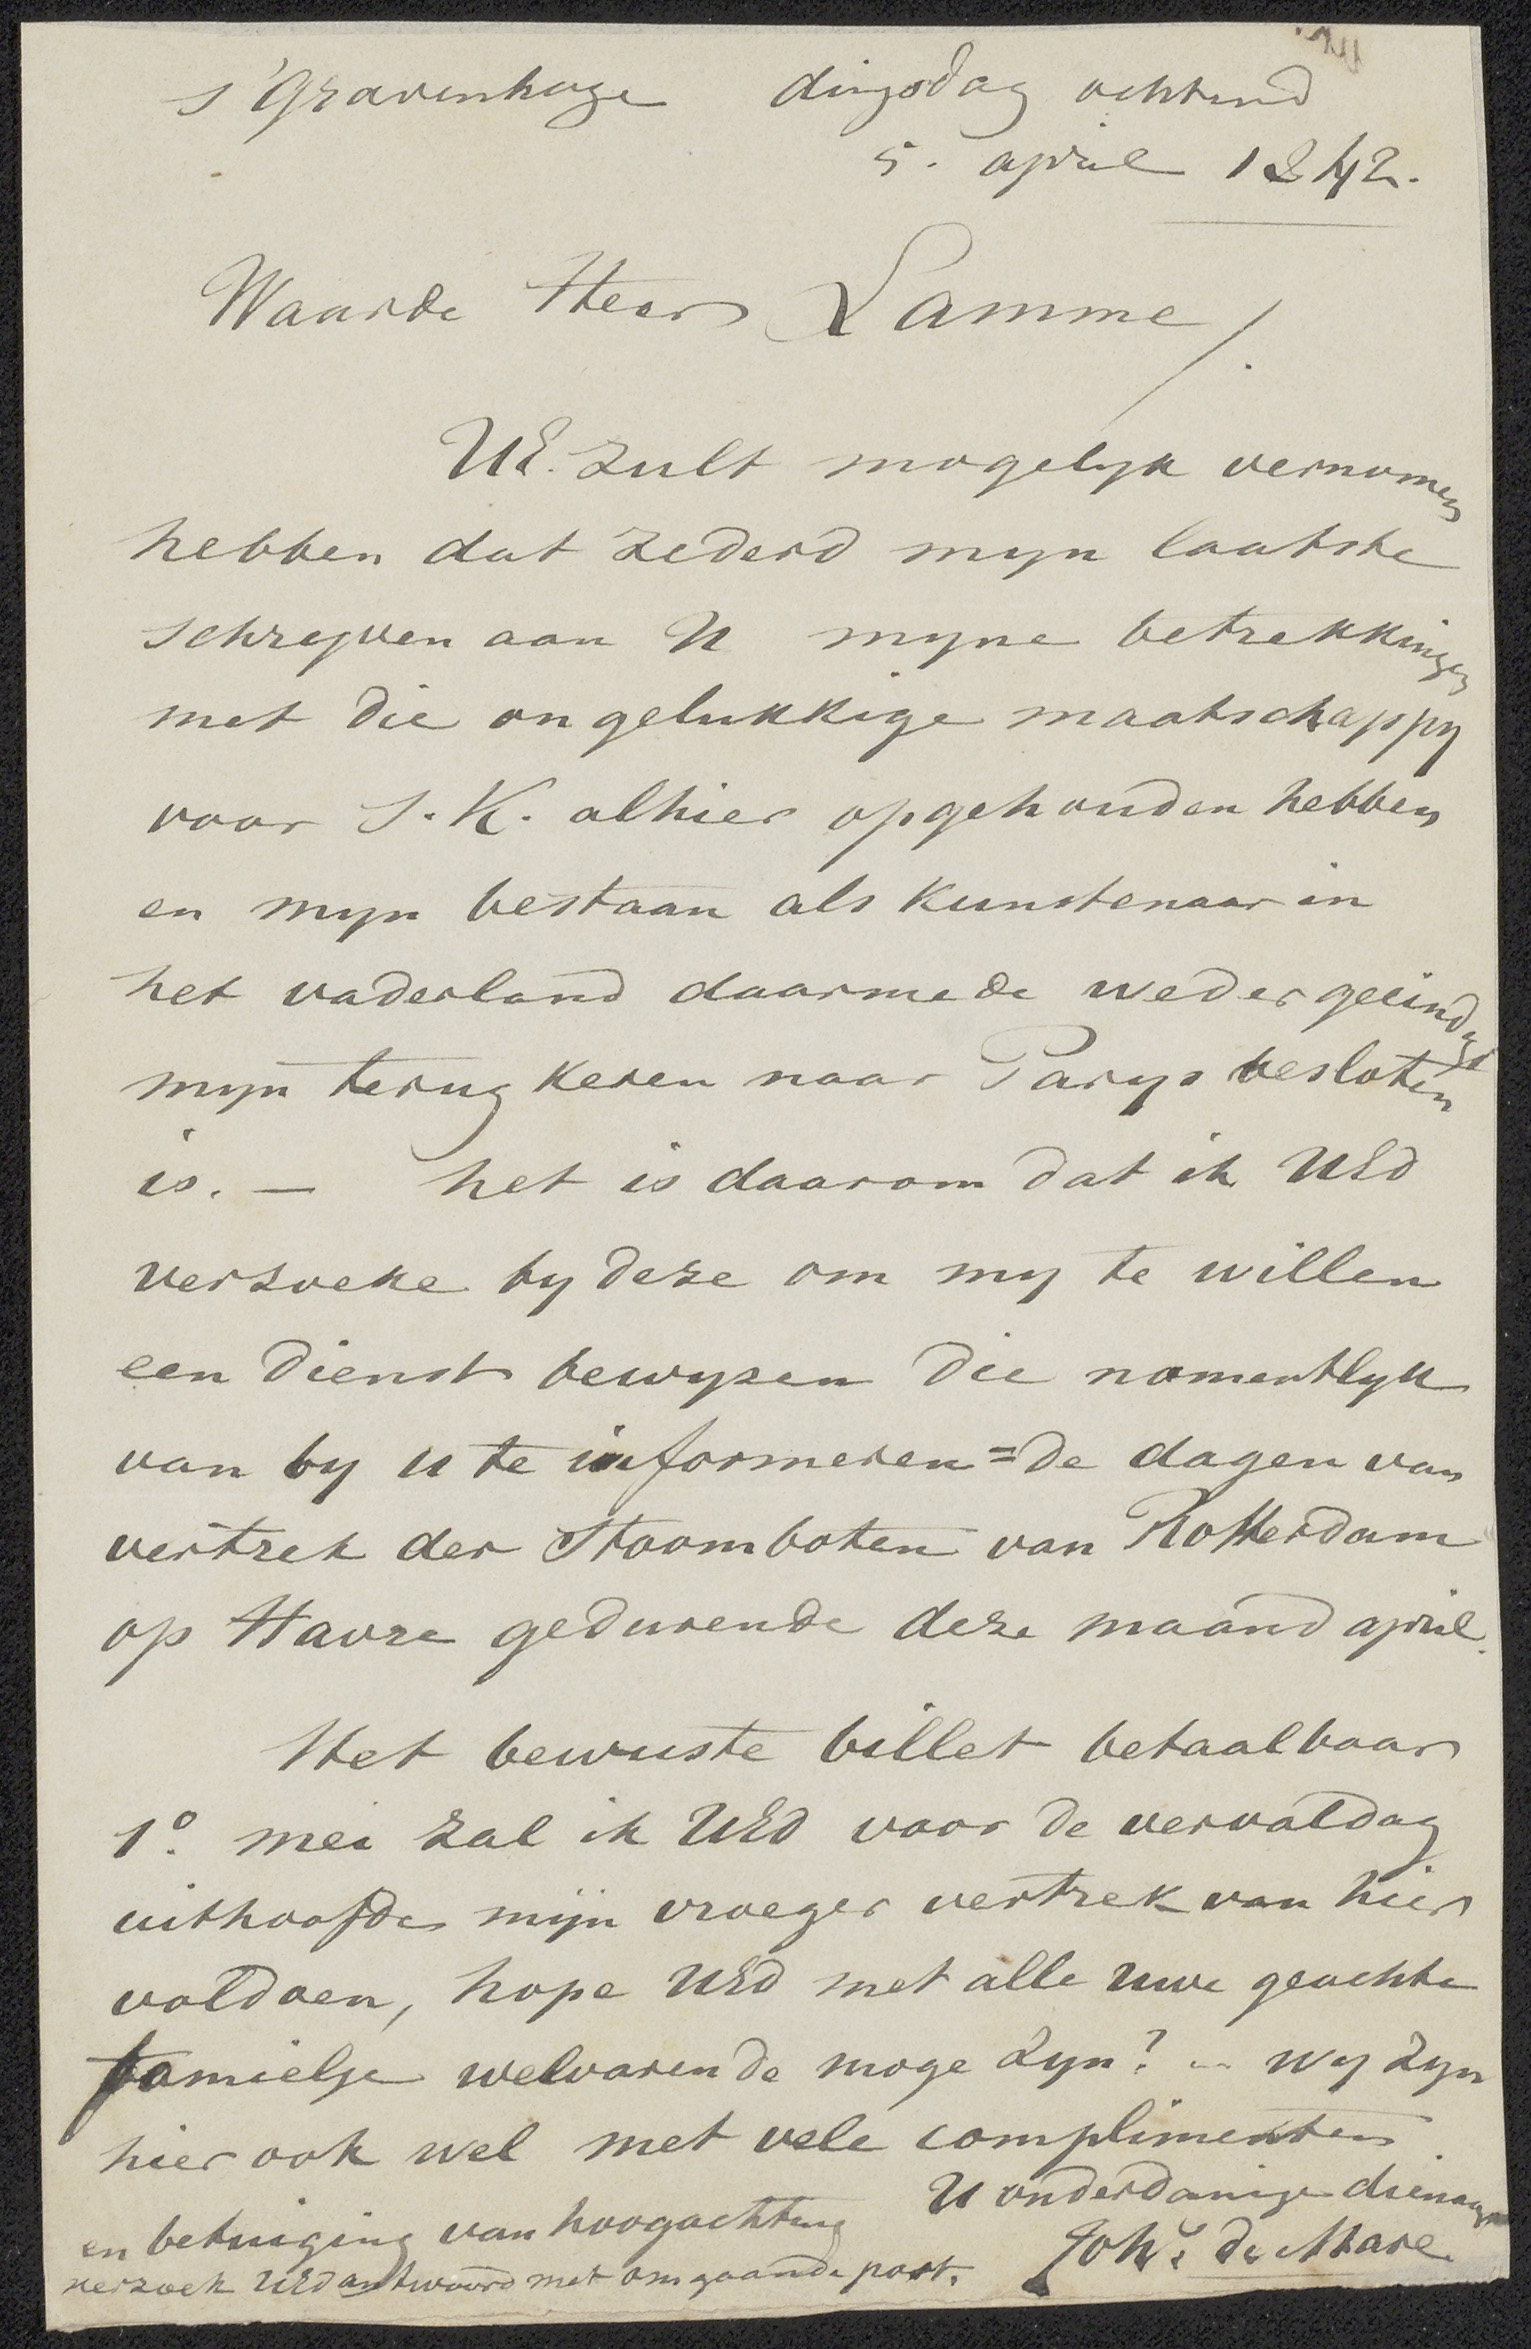 s'Gravenhage dingsdag ochtend
5. april 1842.
Waarde Heer Lamme /.
UE. zult mogelyk vernomen
hebben dat zederd myn laatste
schryven aan U myne betrekkingen
met die ongelukkige maatschappy
voor S. K. alhier opgehouden hebben
en myn bestaan als kunstenaar in
het vaderland daarmede weder geëindigd
myn terug keren naar Parys besloten
is. — het is daarom dat ik UEd
verzoeke by deze om my te willen
een dienst bewyzen die namentlyk
van by u te informeren = de dagen van
vertrek der Stoomboten van Rotterdam
op Havre gedurende deze maand april.
Het bewuste billet betaalbaar
1o. mei zal ik UEd voor de vervaldag
uithoofde mijn vroeger vertrek van hier
voldoen, hope UEd met alle uwe geachte
famielje welvarende moge zyn? — wy zyn
hier ook wel met vele complimenten
en betuiging van hoogachting U onderdanige dienaar
verzoek UEd antwoord met omgaande post. Johs. de Mare